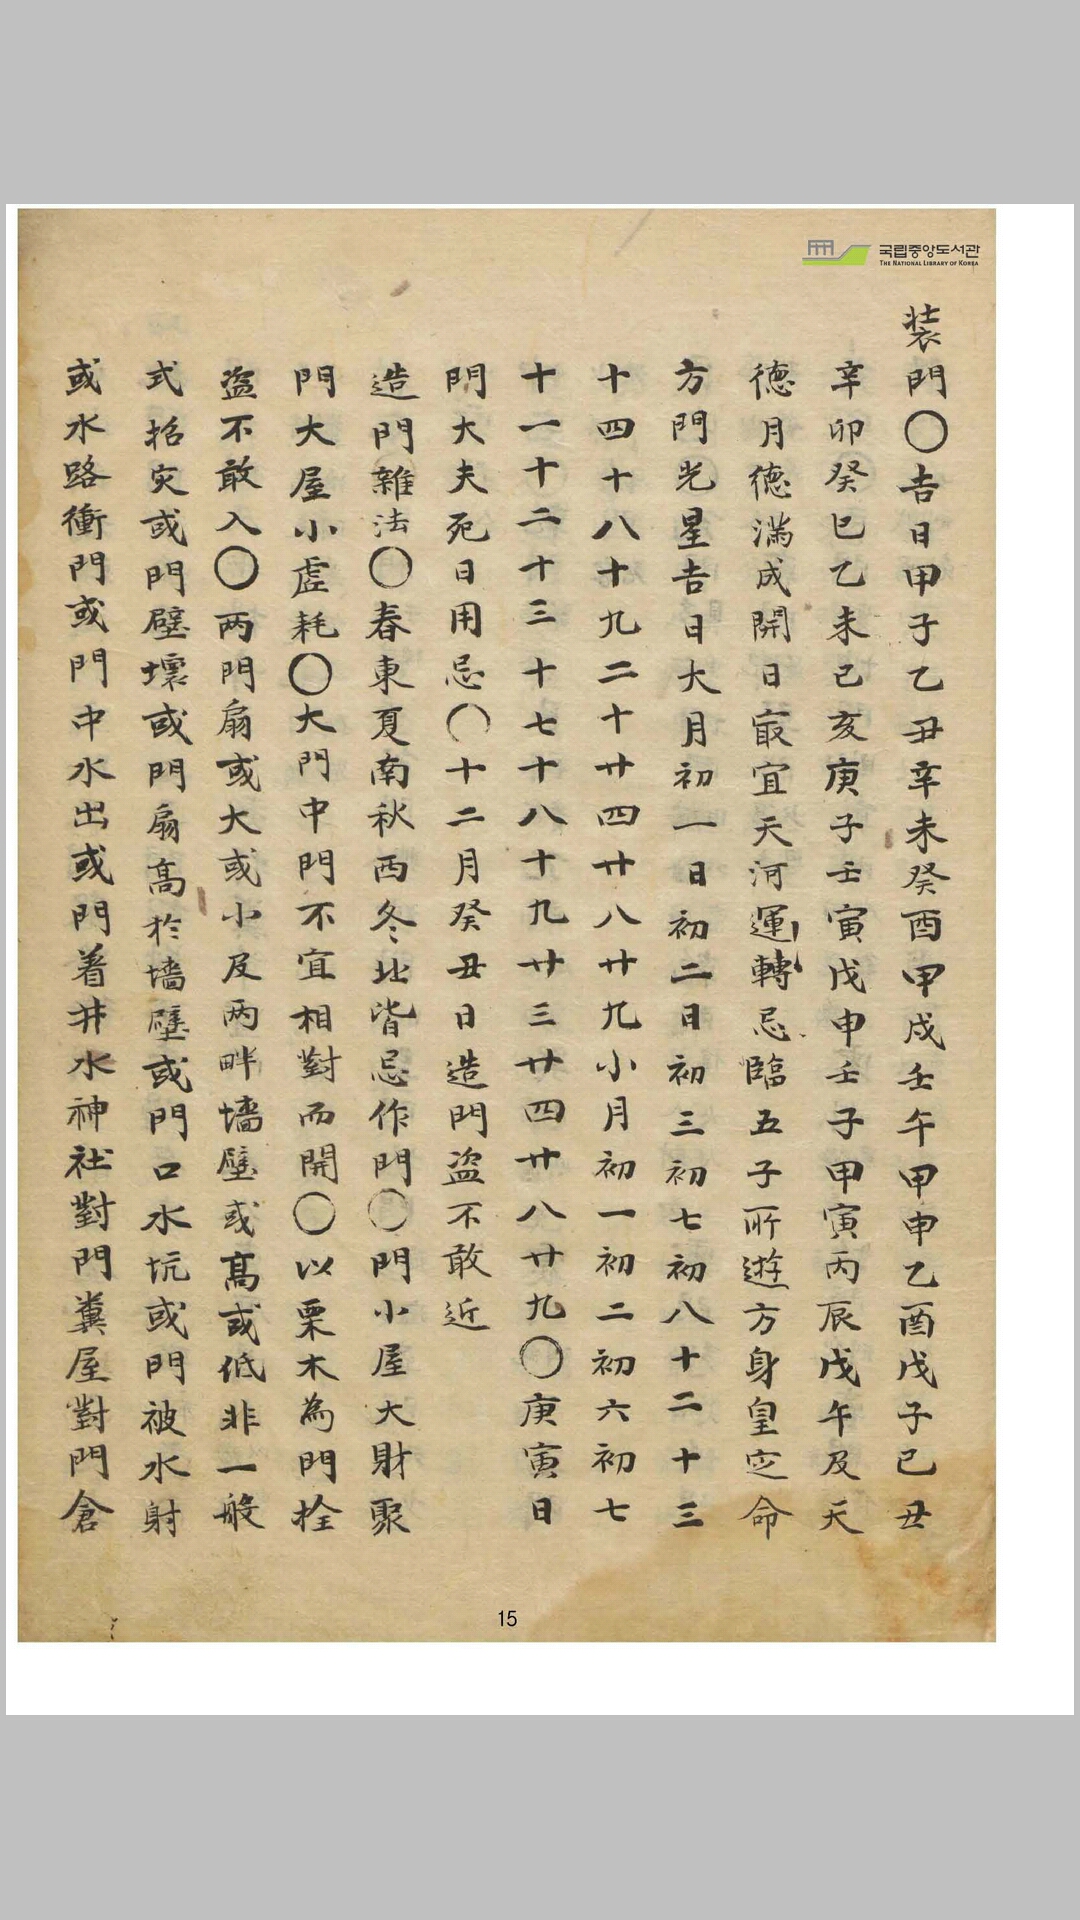 국립중앙도서관
THE NATIONAL LIBRARY OF KOREA
装門○吉日甲子乙丑辛未癸酉甲戌壬午甲申乙酉戊子己丑
辛卯癸巳乙未己亥庚子壬寅戊申壬子甲寅丙辰戊午及天
德月德滿成開日㝡宜天河運轉忌臨五子所遊方身皇定命
方門光星吉日大月初一日初二日初三初七初八十二十三
十四十八十九二十廿四廿八廿九小月初一初二初六初七
十一十二十三十七十八十九廿三廿四廿八廿九○庚寅日
門大夫死日用忌○十二月癸丑日造門盜不敢近
造門雜法○春東夏南秋西冬北皆忌作門○門小屋大財聚
門大屋小虛耗○大門中門不宜相對而開○以栗木為門拴
盜不敢入○两門扇或大或小及两畔墻壁或高或低非一般
式招灾或門壁壞或門扇高於墻壁或門口水坑或門被水射
或水路衝門或門中水出或門着井水神社對門糞屋對門倉
15